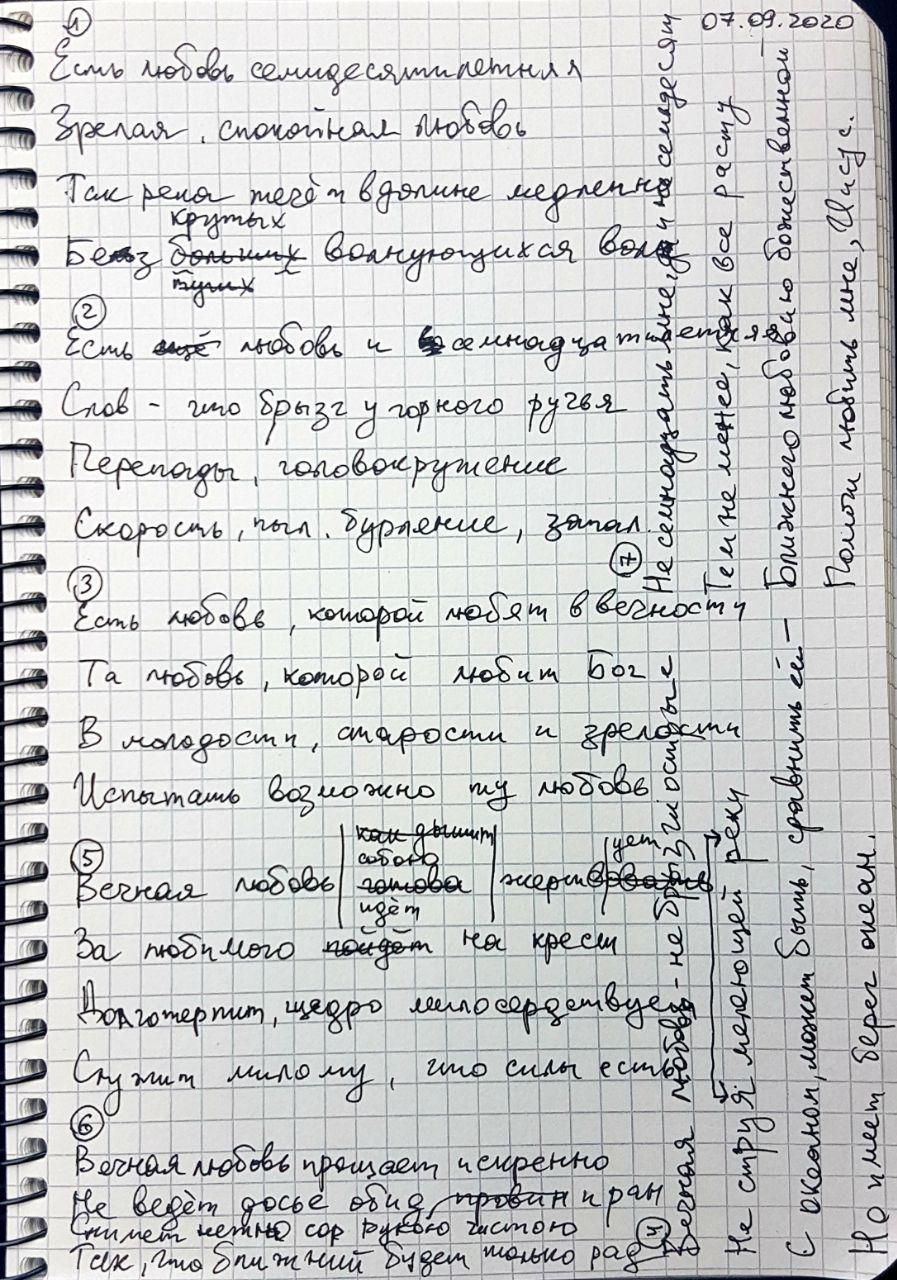 07.09.2020
1
Есть любовь семидесятилетняя
Зрелая, спокойная любовь
Так река течёт в долине медленно
крутых
Без больших волнующихся волн
тугих
2
Есть ещё любовь и семнадцатилетняя
Слов - что брызг у горного ручья
Перепады, головокружение
Скорость, пыл, бурление, запал.
3
Есть любовь, которой любят в вечности
Та любовь, которой любит Бог
В молодости, старости и зрелости
Испытать возможно ту любовь
5
как дышит
собой
Вечная любовь готова жертвовать
ует
идёт
За любимого пойдёт на крест
Долготерпит, щедро милосердствует
Служит милому, что силы есть
6
Вечная любовь прощает искренно
Не ведёт досье обид, провин и ран
Снимет нежно сор рукою чистою
Так, что ближний будет только рад
4
Вечная любовь - не брызги острые
Не струя мелеющей реки
С океаном, может быть, сравнить её —
Но имеет берег океан.
7
Не семнадцать мне, и не семьдесят
Тем не менее, как все расту
Ближнего любовью божественной —
Помоги любить мне, Иисус.